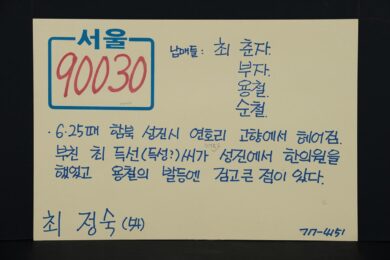 서울
90030
남매들: 최 춘자
부자
용철
순철
· 6.25때 함북 성진시 연호리 고향에서 헤어짐.
· 부친 최 득선(득성?)씨가 성진에서 한의원을
했었고 용철의 발등엔 검고 큰 점이 있다.
최 정숙(54)
717-4151